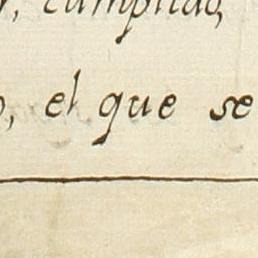 r, cumplido,
o, el que se